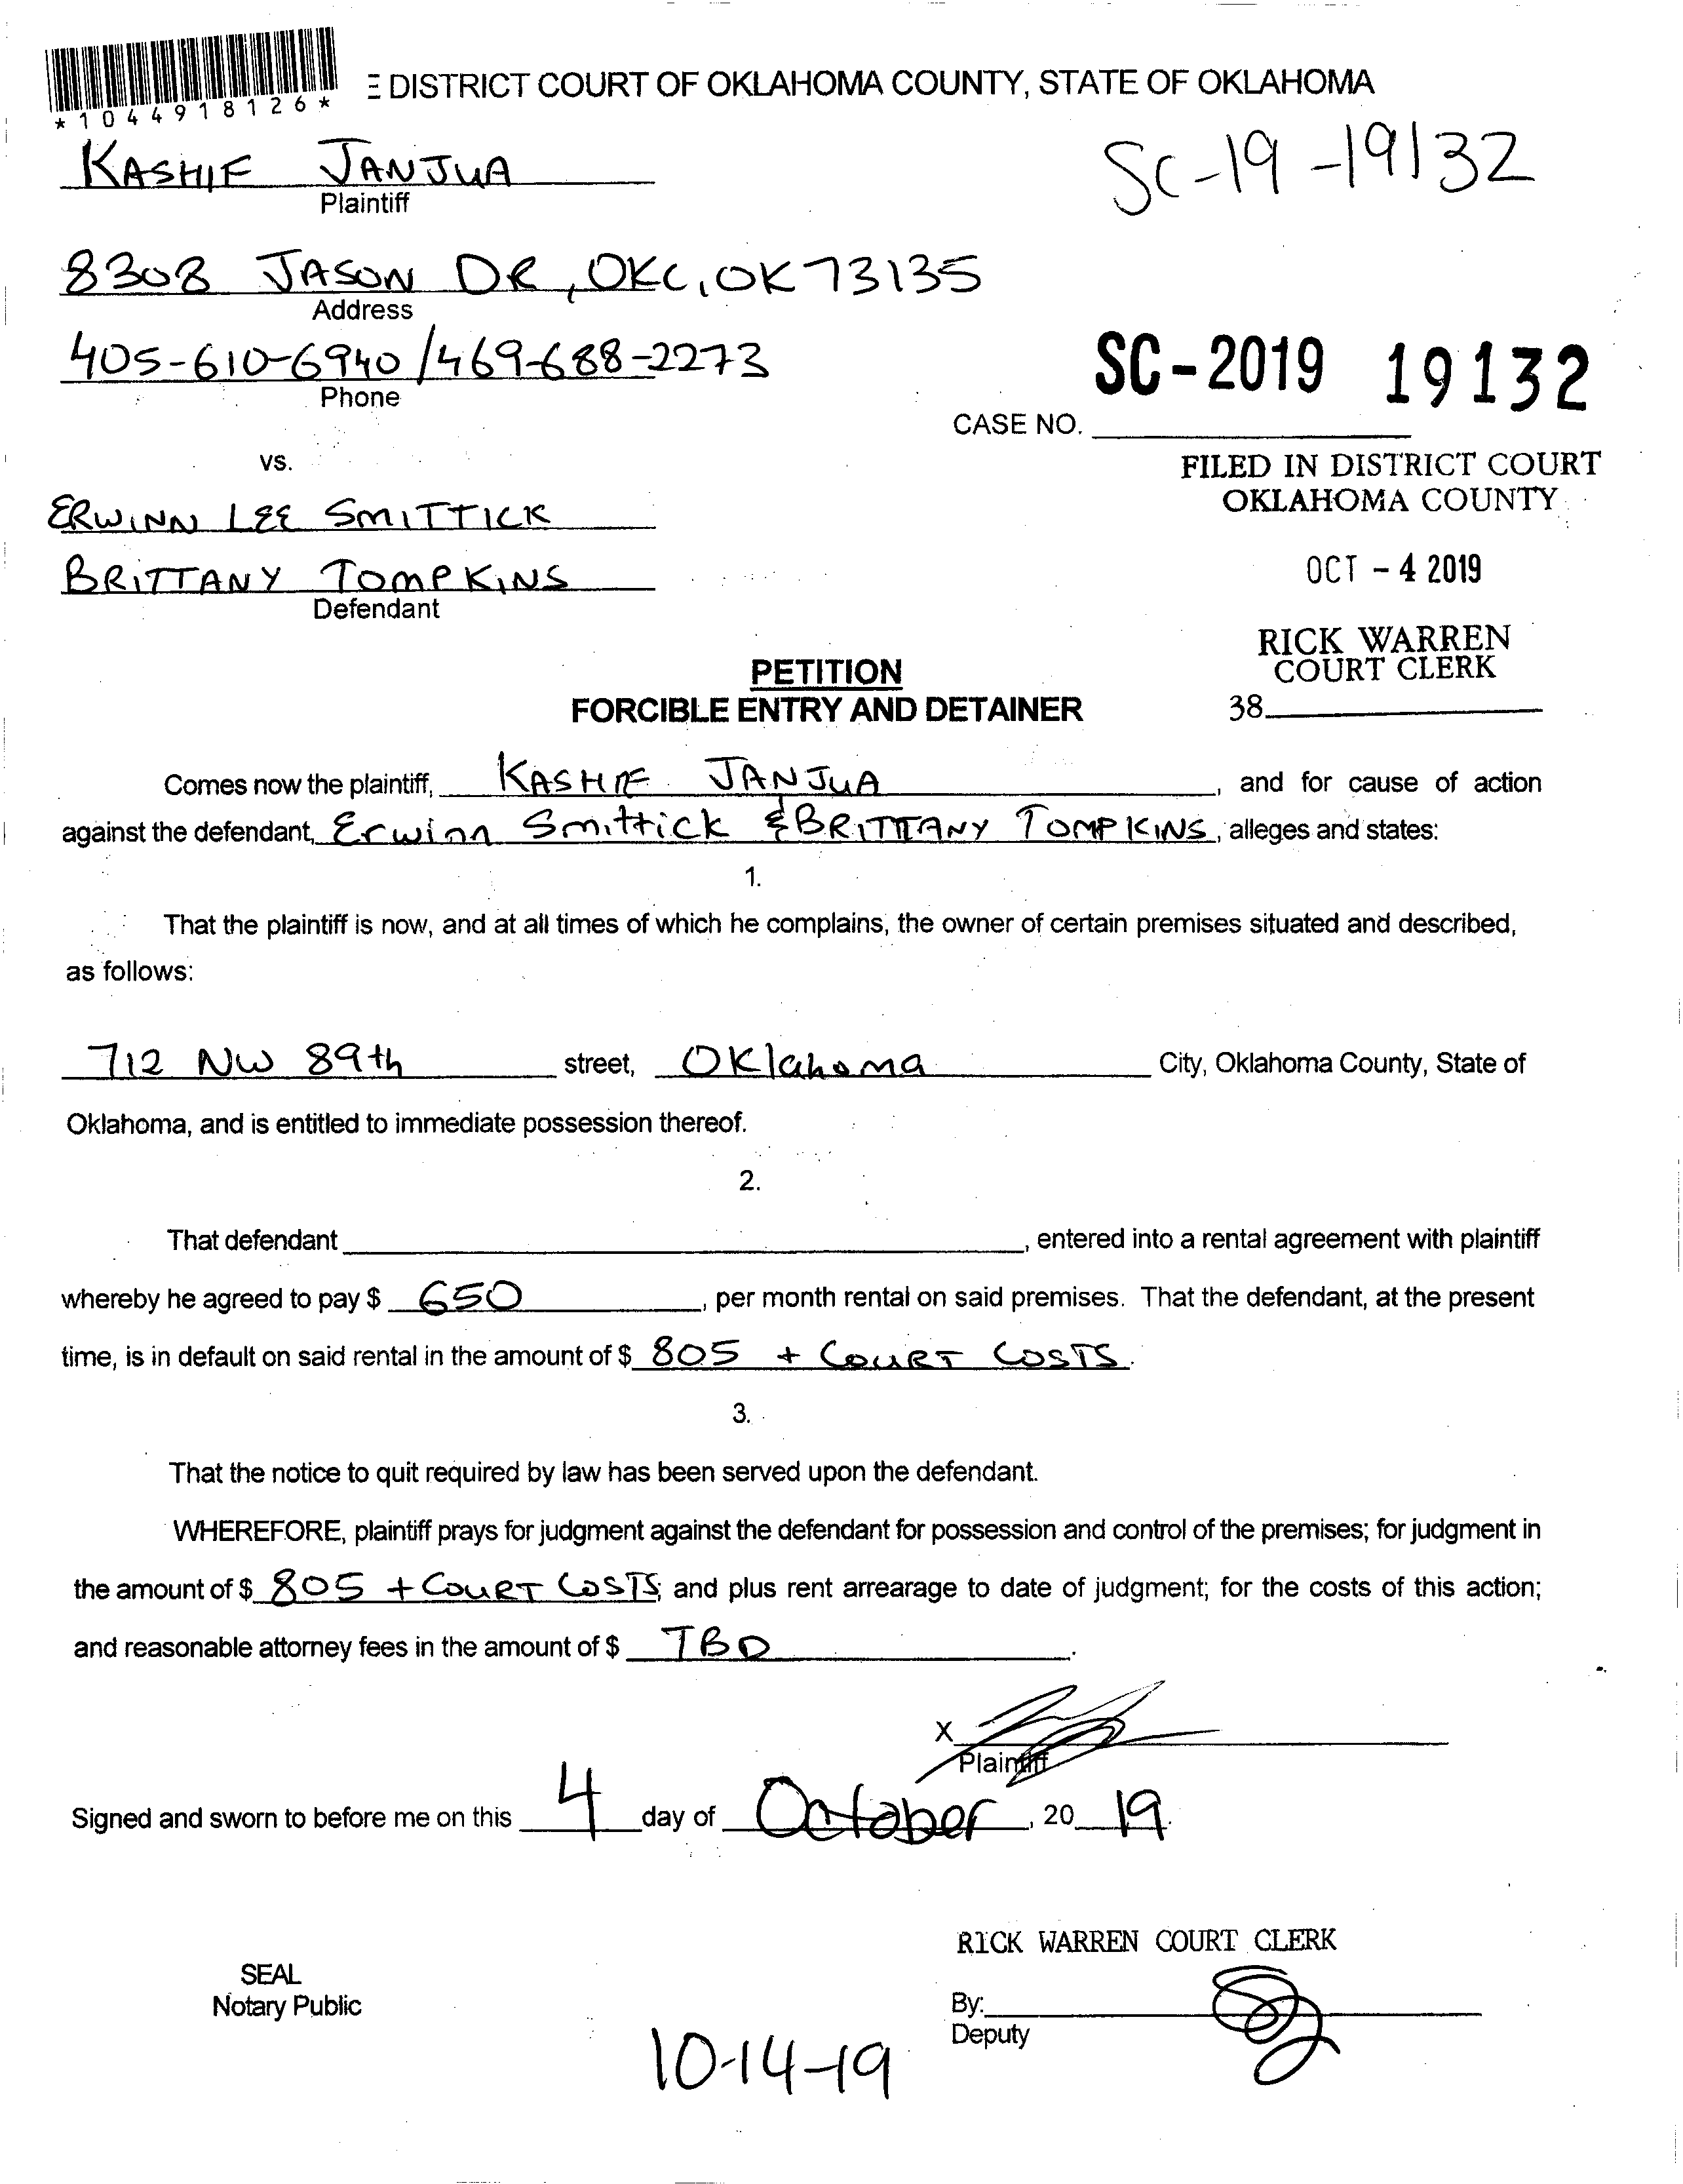 *1044918126*
E DISTRICT COURT OF OKLAHOMA COUNTY, STATE OF OKLAHOMA
KASHIF JANJUA
Plaintiff
SC-19-19132
8308 JASON DR, OKC, OK 73135
Address
405-610-6940 / 469-688-2273
Phone
SC-2019 19132
CASE NO.
vs.
FILED IN DISTRICT COURT
OKLAHOMA COUNTY
ERWINN LEE SMITTICK
BRITTANY TOMPKINS
Defendant
OCT - 4 2019
RICK WARREN
COURT CLERK
38
PETITION
FORCIBLE ENTRY AND DETAINER
Comes now the plaintiff, KASHIF JANJUA, and for cause of action
against the defendant, Erwinn Smittick & BRITTANY TOMPKINS, alleges and states:
1.
That the plaintiff is now, and at all times of which he complains, the owner of certain premises situated and described,
as follows:
712 NW 89th street, Oklahoma City, Oklahoma County, State of
Oklahoma, and is entitled to immediate possession thereof.
2.
That defendant , entered into a rental agreement with plaintiff
whereby he agreed to pay $ 650 , per month rental on said premises. That the defendant, at the present
time, is in default on said rental in the amount of $ 805 + COURT COSTS.
3.
That the notice to quit required by law has been served upon the defendant.
WHEREFORE, plaintiff prays for judgment against the defendant for possession and control of the premises; for judgment in
the amount of $ 805 + COURT COSTS; and plus rent arrearage to date of judgment; for the costs of this action;
and reasonable attorney fees in the amount of $ TBD.
X
Plaintiff
Signed and sworn to before me on this 4 day of October, 20 19.
RICK WARREN COURT CLERK
SEAL
Notary Public
By:
Deputy
10-14-19